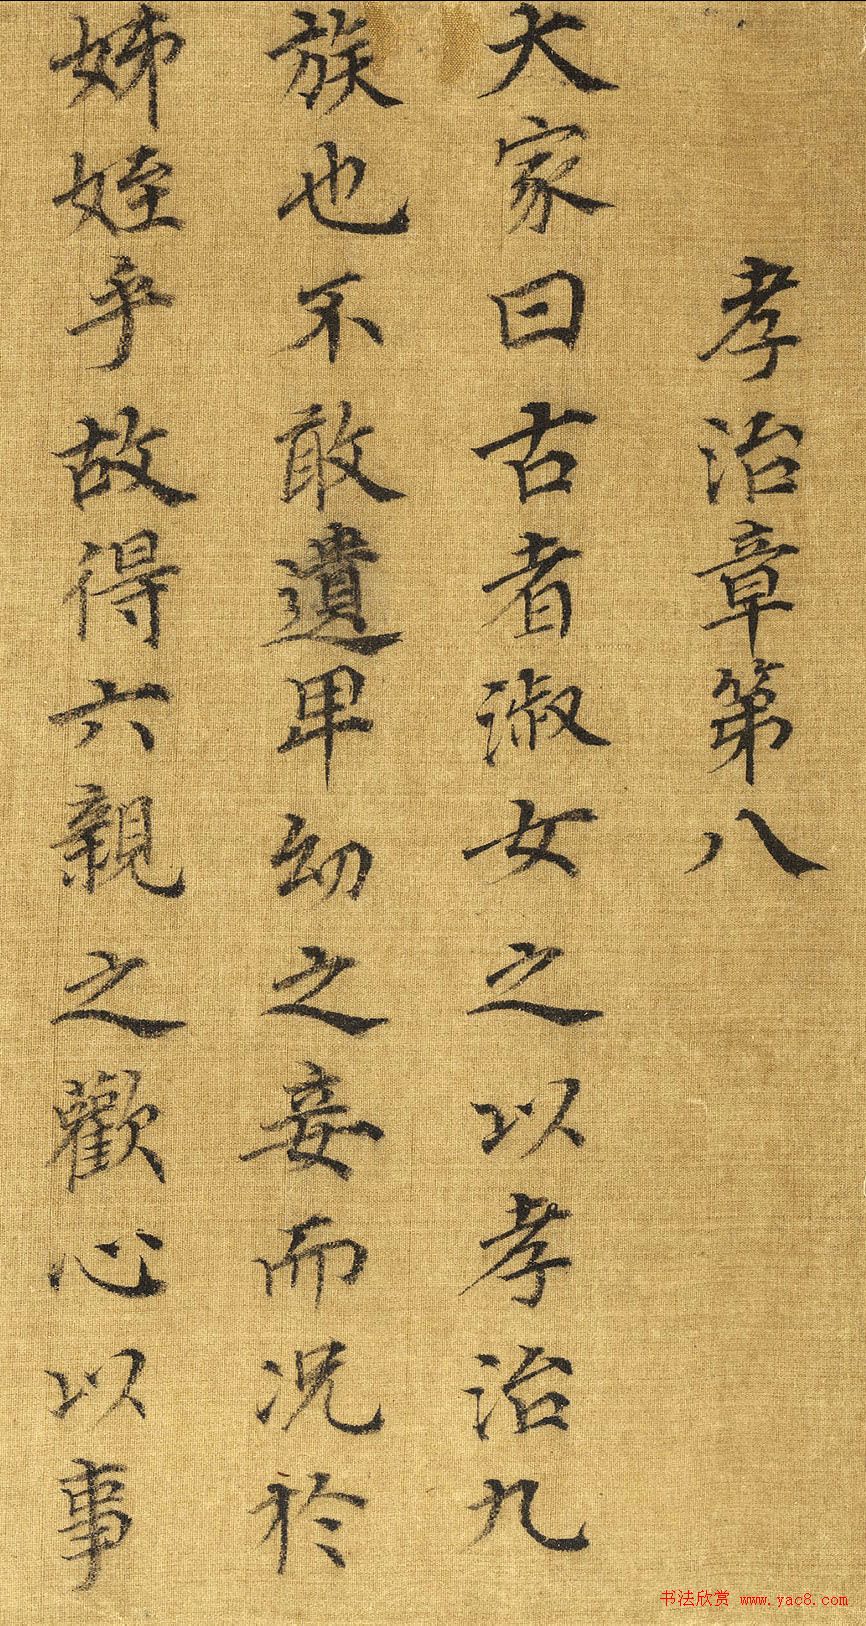 孝治章第八
大家曰古者淑女之以孝治九
族也不敢遺卑幼之妾而况於
姊姪乎故得六親之歡心以事
书法欣赏 www.yac8.com